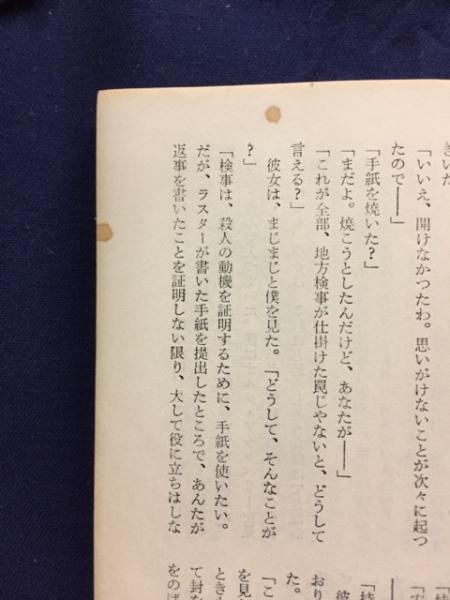 きいた
「いいえ、開けなかつたわ。思いがけないことが次々に起つ
たので――」
「手紙を焼いた？」
「まだよ。焼こうとしたんだけど、あなたが――」
「これが全部、地方検事が仕掛けた罠じゃないと、どうして
言える？」
彼女は、まじまじと僕を見た。「どうして、そんなことが
？」
「検事は、殺人の動機を証明するために、手紙を使いたい。
だが、ラスターが書いた手紙を提出したところで、あんたが
返事を書いたことを証明しない限り、大して役に立ちはしな
――
「持
彼
おり
た。
「こ
を見
ときも
て封な
をのば